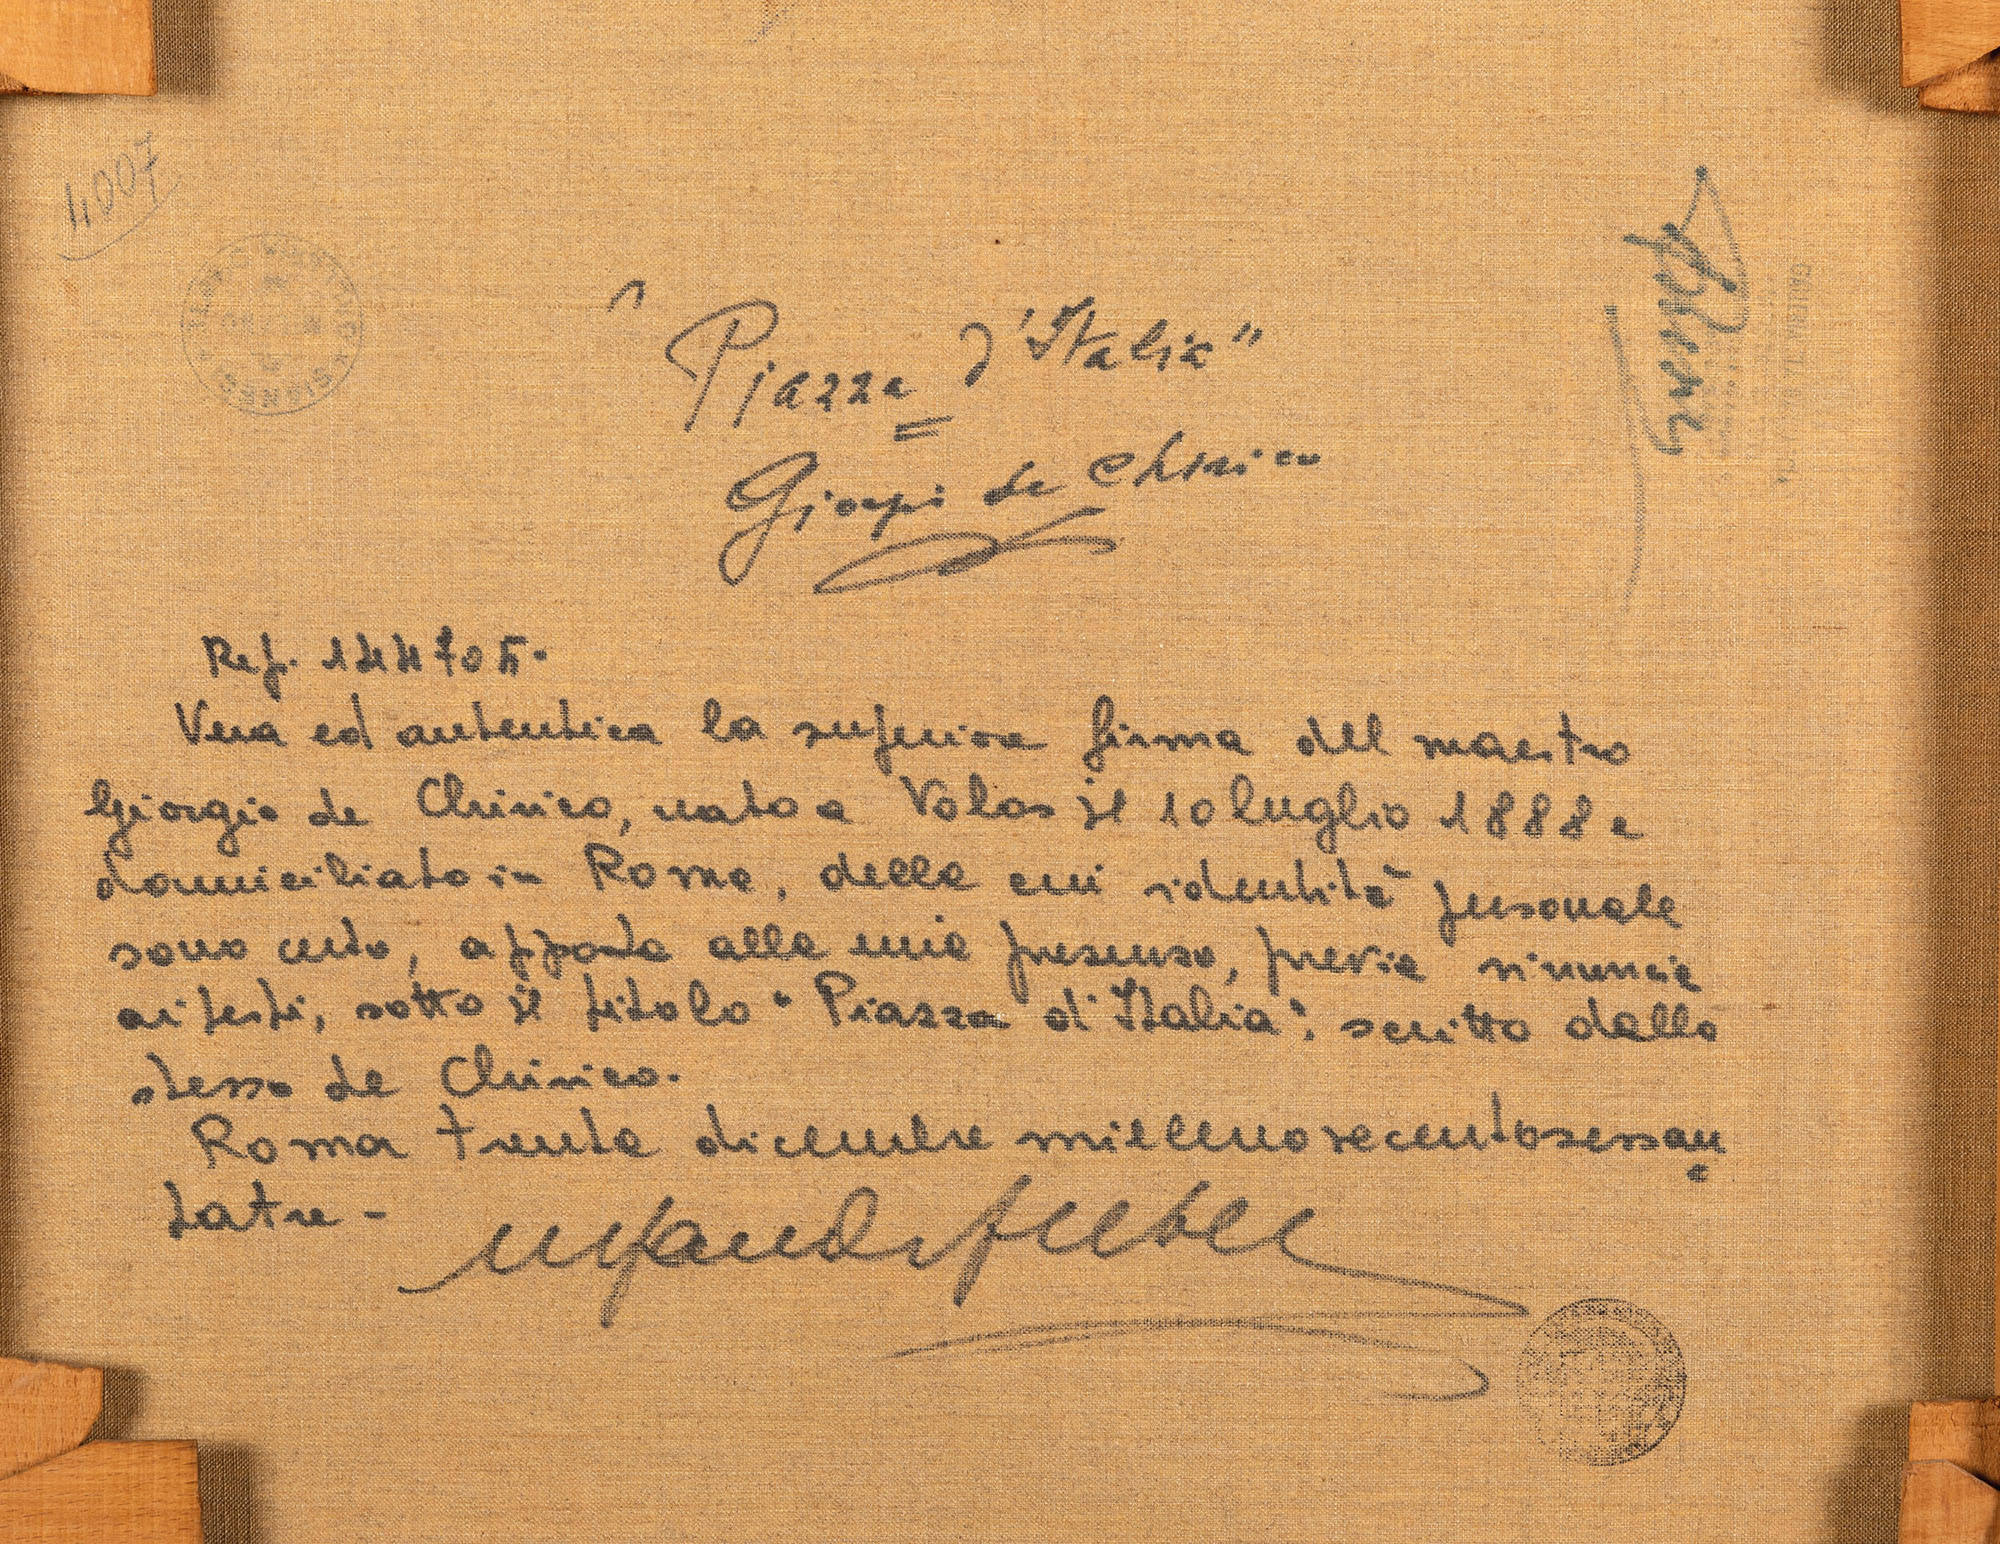 4007
"Piazza d'Italia"
Giorgio de Chirico
Rep. 144705.
Vera ed autentica la superiore firma del maestro
Giorgio de Chirico, nato a Volos il 10 luglio 1888 e
domiciliato in Roma, della cui identità personale
sono certo, apposta alla mia presenza, previa rinuncia
ai testi, sotto il titolo "Piazza d'Italia", scritto dallo
stesso de Chirico.
Roma trenta dicembre millenovecentosessan
tatre -